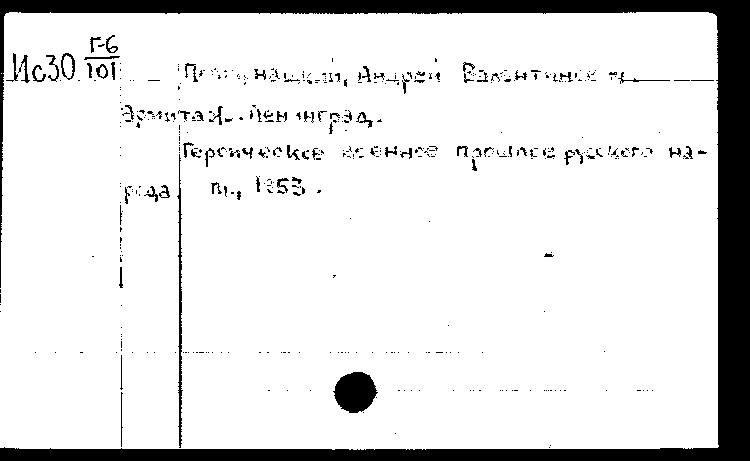 Ис30 Г-6
101
Андрей Валентинов
Эрмитаж. Ленинград.
Героическое военное прошлое русского на-
рода. 1953.